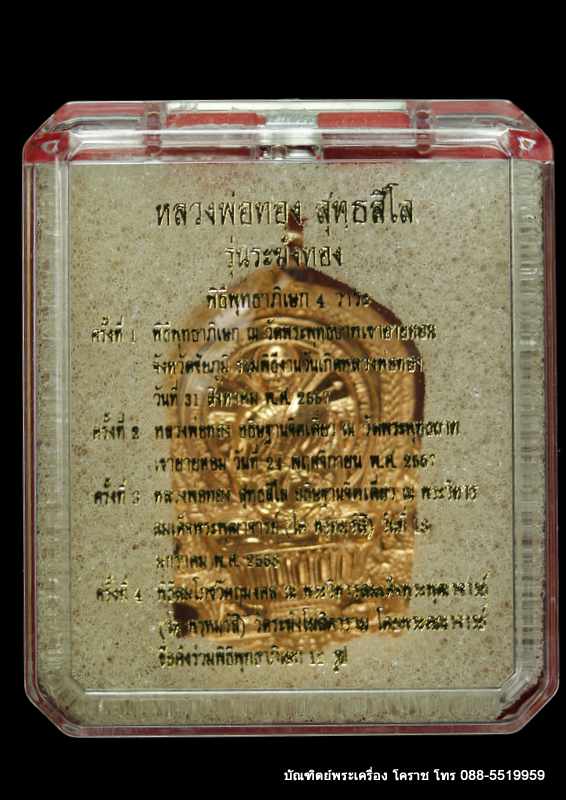 หลวงพ่อทอง สุทฺธสีโล
รุ่นระฆังทอง
พิธีพุทธาภิเษก 4 วาระ
ครั้งที่ 1 พิธีพุทธาภิเษก ณ วัดพระพุทธบาทเขายายหอม
จังหวัดชัยภูมิ รวมพิธีงานวันเกิดหลวงพ่อทอง
วันที่ 31 สิงหาคม พ.ศ.
ครั้งที่ 2 หลวงพ่อทอง อธิษฐานจิตเดี่ยว ณ วัดพระพุทธบาท
เขายายหอม วันที่ 24 พฤศจิกายน พ.ศ.
ครั้งที่ 3 หลวงพ่อทอง สุทฺธสีโล อธิษฐานจิตเดี่ยว ณ พระวิหาร
สมเด็จพระพุฒาจารย์ (โต พรหมรังสี) วันที่
มกราคม พ.ศ.
ครั้งที่ 4 ณ พระวิหารสมเด็จพระพุฒาจารย์
(โต พรหมรังสี) วัดระฆังโฆสิตาราม โดยพระคณาจารย์
ชื่อดังร่วมพิธีพุทธาภิเษก 12 รูป
บัณฑิตย์พระเครื่อง โคราช โทร 088-5519959